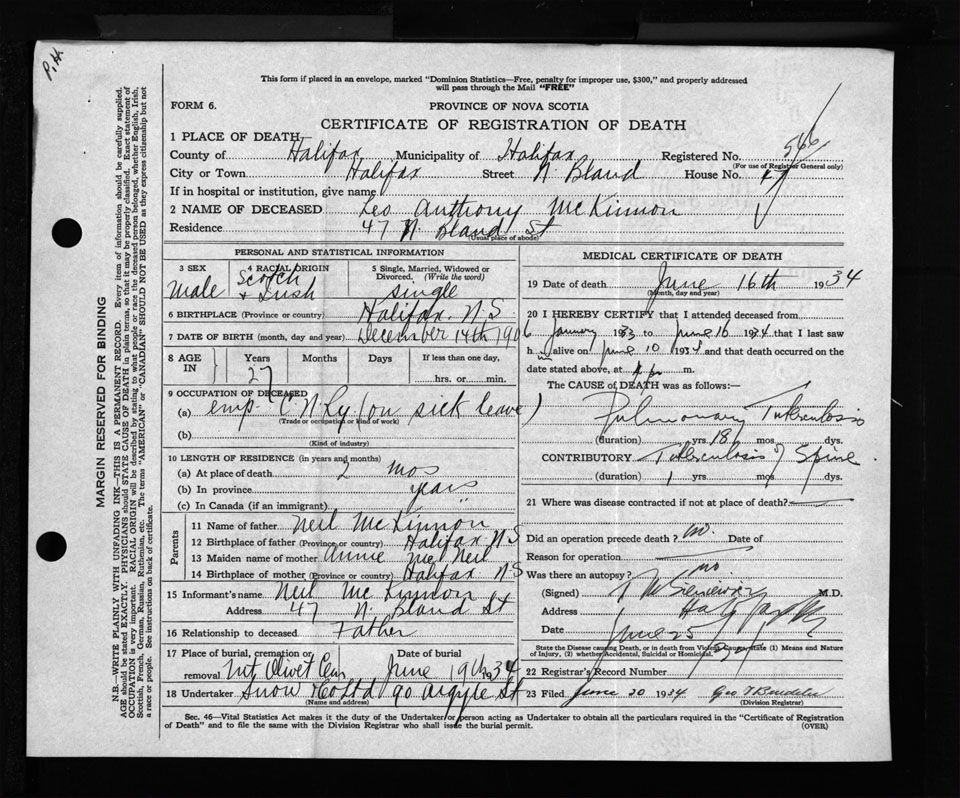 P.H.
This form if placed in an envelope, marked "Dominion Statistics—Free, penalty for improper use, $300," and properly addressed
will pass through the Mail "FREE"
FORM 6.
PROVINCE OF NOVA SCOTIA
CERTIFICATE OF REGISTRATION OF DEATH
1 PLACE OF DEATH
566
County of Halifax Municipality of Halifax Registered No.
(For use of Registrar General only)
City or Town Halifax Street N. Bland House No. 47
If in hospital or institution, give name
2 NAME OF DECEASED Leo Anthony McKinnon
Residence 47 N. Bland St
(Usual place of abode)
PERSONAL AND STATISTICAL INFORMATION
3 SEX male
4 RACIAL ORIGIN Scotch & Irish
5 Single, Married, Widowed or Divorced. (Write the word) single
6 BIRTHPLACE (Province or country) Halifax. N.S.
7 DATE OF BIRTH (month, day and year) December 14th 1906
8 AGE IN Years Months Days If less than one day,
27 hrs. or min.
9 OCCUPATION OF DECEASED
(a) emp- C N Ry (on sick leave)
(Trade or occupation or kind of work)
(b)
(Kind of industry)
10 LENGTH OF RESIDENCE (in years and months)
(a) At place of death 2 mos
(b) In province years
(c) In Canada (if an immigrant) "
Parents
11 Name of father Neil McKinnon
12 Birthplace of father (Province or country) Halifax N S
13 Maiden name of mother Annie McNeil
14 Birthplace of mother (Province or country) Halifax N S
15 Informant's name Neil McKinnon
Address 47 N. Bland St
16 Relationship to deceased Father
17 Place of burial, cremation or removal Mt Olivet Cem Date of burial June 19th 1934
18 Undertaker Snow & Co Ltd 90 Argyle St
(Name and address)
MEDICAL CERTIFICATE OF DEATH
19 Date of death June 16th 1934
(Month, day and year)
20 I HEREBY CERTIFY that I attended deceased from
January 1933 to June 16 1934 that I last saw
him alive on June 10 1934 and that death occurred on the
date stated above, at m.
The CAUSE of DEATH was as follows:—
Pulmonary Tuberculosis
(duration) yrs. 18 mos. dys.
CONTRIBUTORY Tuberculosis of Spine
(duration) 1 yrs. mos. dys.
21 Where was disease contracted if not at place of death?
Did an operation precede death? no. Date of
Reason for operation
Was there an autopsy? no
(Signed) M.D.
Address Halifax
Date June 25
State the Disease causing Death, or in death from Violent Causes state (1) Means and Nature
of Injury, (2) whether Accidental, Suicidal or Homicidal.
22 Registrar's Record Number
23 Filed June 20 1934 Geo
(Division Registrar)
Sec. 46—Vital Statistics Act makes it the duty of the Undertaker or person acting as Undertaker to obtain all the particulars required in the "Certificate of Registration
of Death" and to file the same with the Division Registrar who shall issue the burial permit. (OVER)
MARGIN RESERVED FOR BINDING
N.B.—WRITE PLAINLY WITH UNFADING INK—THIS IS A PERMANENT RECORD. Every item of information should be carefully supplied.
AGE should be stated EXACTLY. PHYSICIANS should STATE CAUSE OF DEATH in plain terms, so that it may be properly classified. Exact statement of
OCCUPATION is very important. RACIAL ORIGIN will be described by stating to what people or race the deceased person belonged, whether English, Irish,
Scottish, French, German, Russian, Ruthenian, etc. The terms "AMERICAN" or "CANADIAN" SHOULD NOT BE USED as they express citizenship but not
a race or people. See instructions on back of certificate.